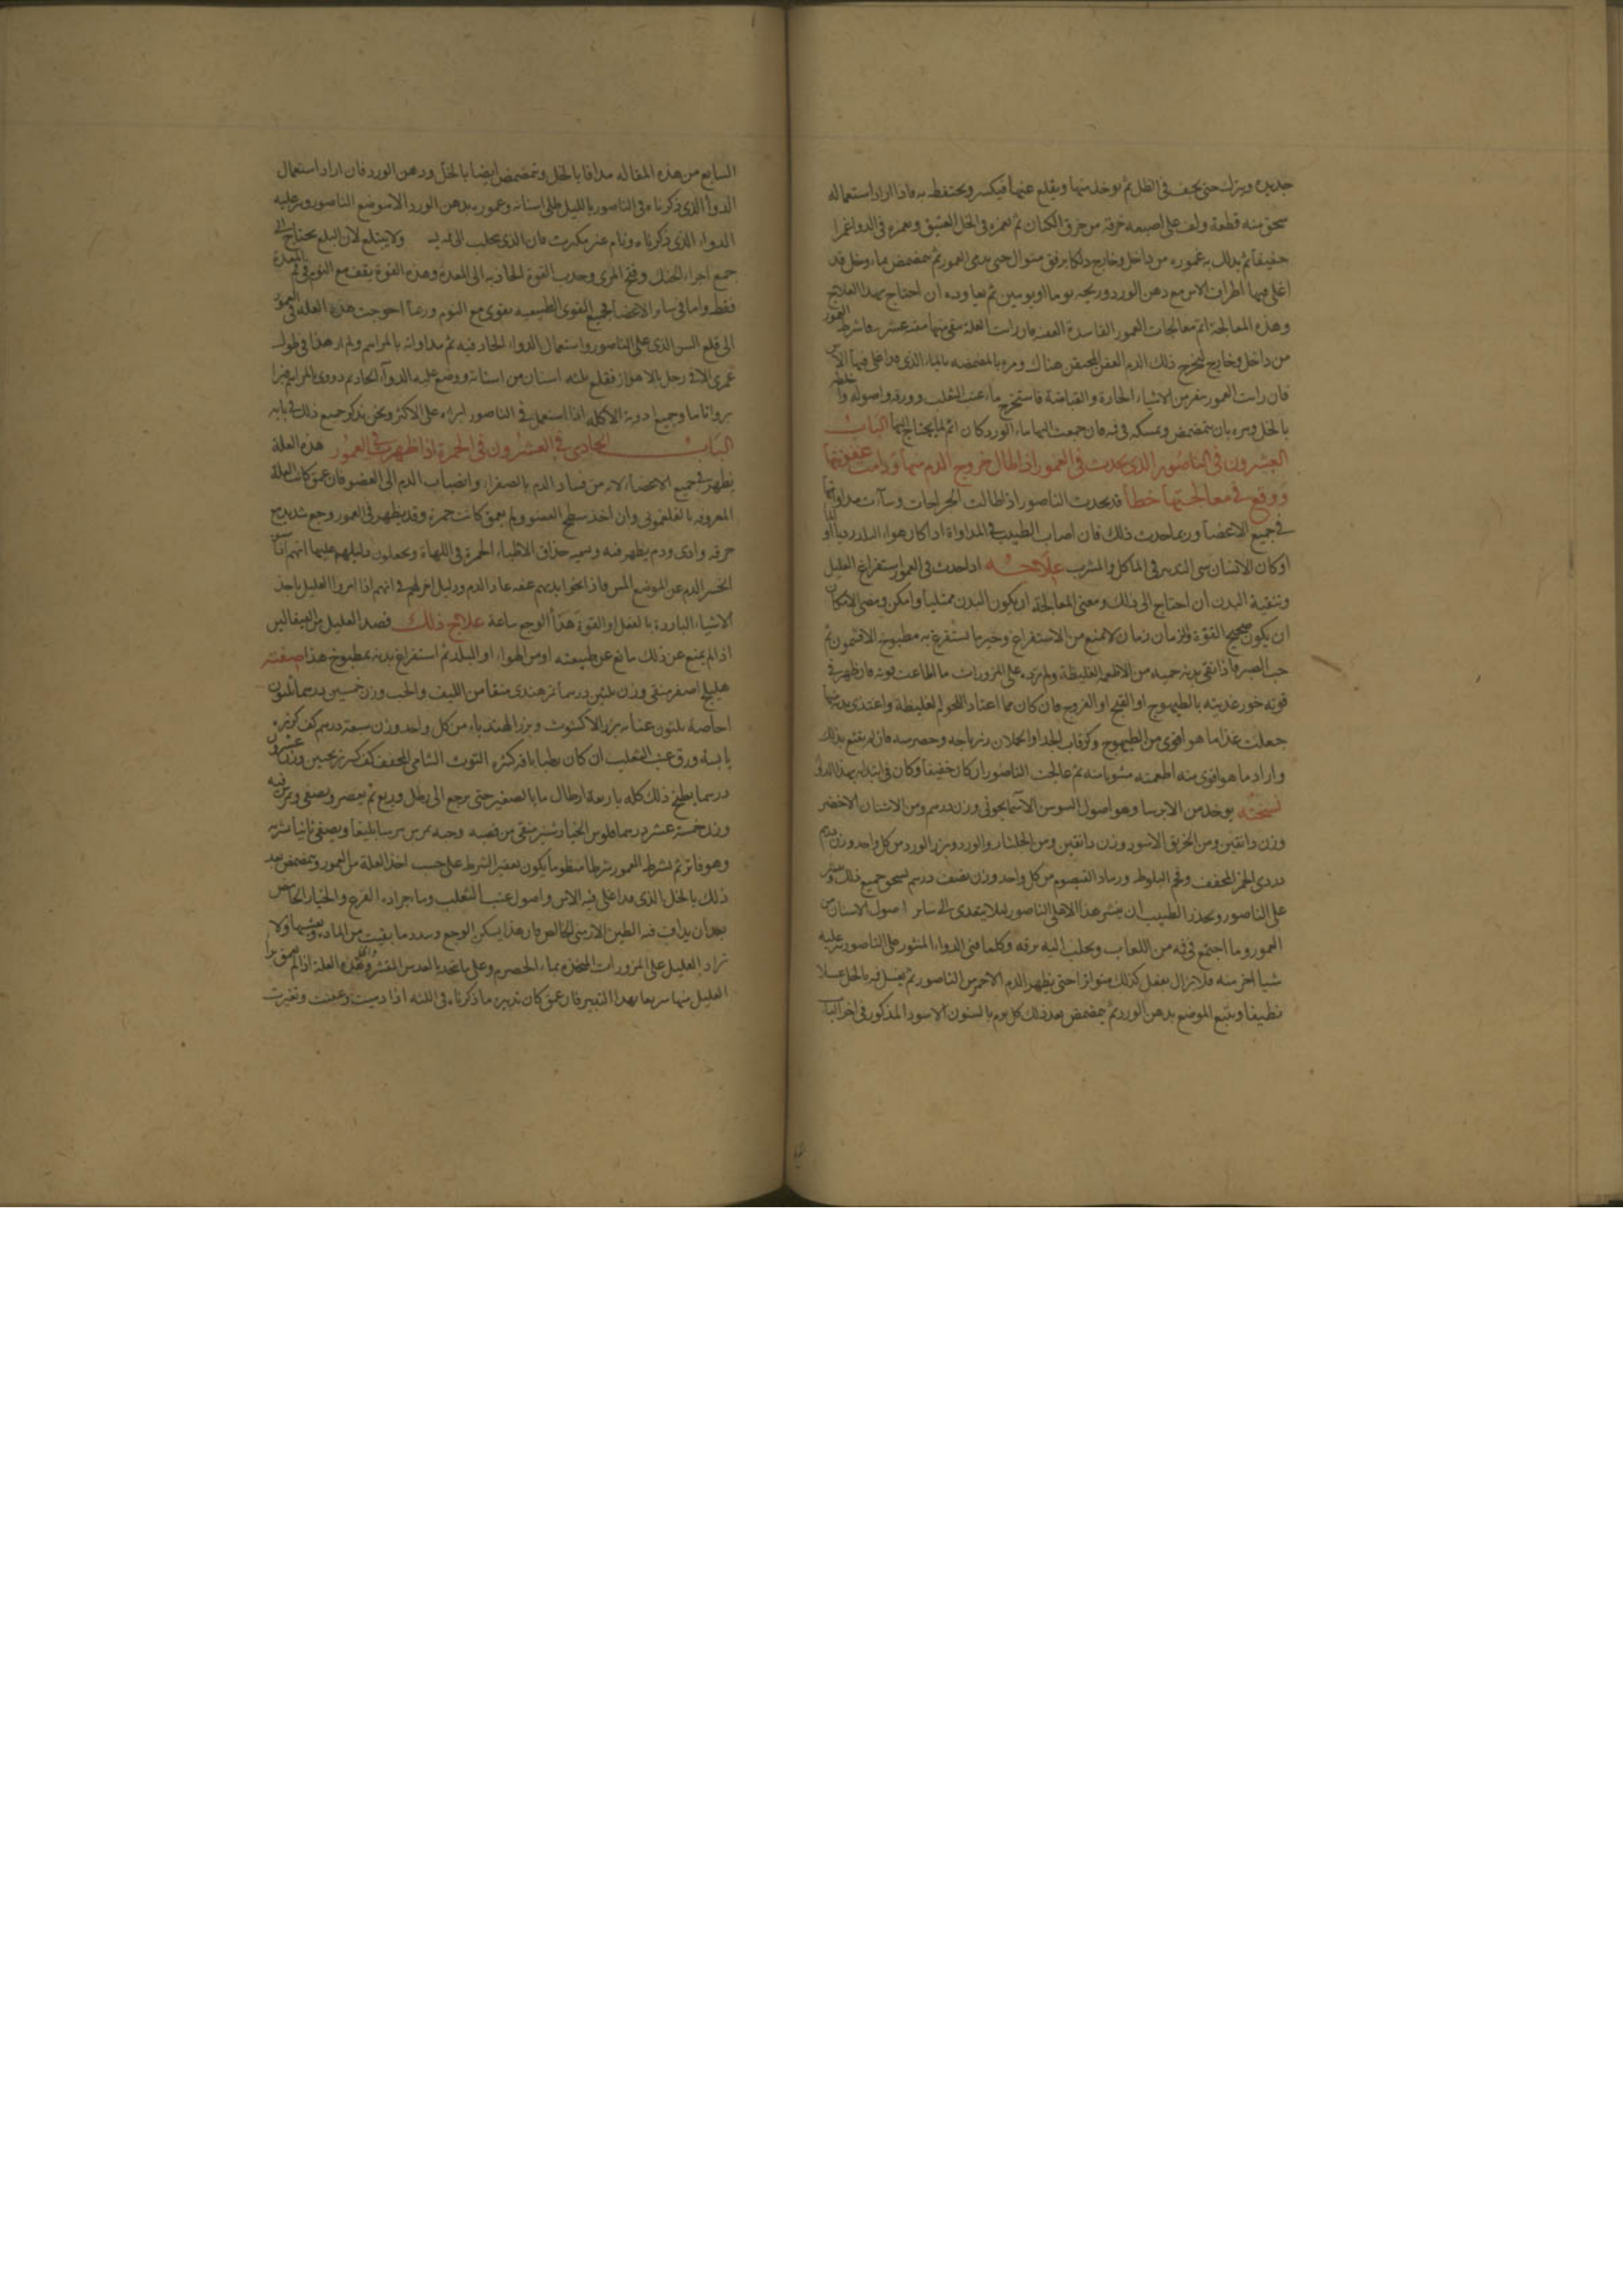 جديده ويترك حتى يجف فى الظل ثم يوخذ منها ويقلع عنها فيكسر ويحتفظ به فاذا اراد استعماله
سحق منه قطعة ولف على اصبعه خرقة من خرق الكتان ثم نغمزه فى الخل العتيق ونغمزه فى الدوا غمزا
خفيفا ثم يدلك به عموره من داخل وخارج دلكا برفق متوال حتى يدمى العمور ثم يتمضمض بماء وخل قد
اغلى فيها اطراف الاس مع دهن الورد ويريحه يوما او يومين ثم يعاوده ان احتاج بهذا العلاج
وهذه المعالجة اتم معالجات العمور الفاسدة العفنه فان رات العلة بقى منها عشر فاشرط العمور
من داخل وخارج ليخرج ذلك الدم العفن المحتقن هناك ومره بالمضمضه بالماء الذى قد اغلى فيها الاس
فان رات العمور تنفر من الاشياء الحارة والقباضة فاستخرج ماء عنب الثعلب وورقه واصوله
بالخل ومره بان يتمضمض ويمسكه فى فمه فان جمعت اليها ماء الورد كان اتم لما يحتاج اليها الباب
العشرون فى الناصور الذى يحدث فى العمور اذا طال خروج الدم منها ودامت عفونتها
ووقع فى معالجتها خطأ قد يحدث الناصور اذا طالت الجراحات وساءت مداواتها
فى جميع الاعضا وربما حدث ذلك فان اصاب الطبيب فى المداواة اذا كان هواء البلد رديا
او كان الانسان سى التدبير فى الماكل والمشرب علاجه اذا حدث فى العمور استفراغ العليل
وتنقية البدن ان احتاج الى ذلك ومعنى المعالجة ان يكون البدن ممتليا وامكن ومعنى الامكان
ان يكون صحيح القوة والزمان زمان لا يمنع من الاستفراغ وخير ما يستفرغ به مطبوخ الافتيمون ثم
حب الصبر فاذا نقى بدنه حميه من الاطعمة الغليظة ولم يزده على المزورات ما اطاعت قوته فان ظهر فى
قوته خور غذيته بالطيهوج او القبج او الفروج فان كان مما اعتاد اللحوم الغليظة واغتذى بدنه منها
جعلت غذاءه ما هو اقوى من الطيهوج وكرقاب الجدا والحملان زيرباجه وحصرميه فان لم يقنع بذلك
واراد ما هو اقوى منه اطعمته مشويا منه ثم عالجت الناصور ان كان خفيفا وكان فى ابتدايه بهذا الدوا
نسخته يوخذ من الايرسا وهو اصول السوسن الاسمانجونى وزن درهم ومن الاشنان الاخضر
وزن دانقين ومن الخربق الاسود وزن دانقين ومن الجلنار والورد وبزر الورد من كل واحد وزن درهم
دردى الخمر المجفف وقمع البلوط ورماد القيصوم من كل واحد وزن نصف درهم يسحق جميع ذلك وينثر
على الناصور ويحذر الطبيب ان ينثر هذا الا على الناصور ليلا يتعدى الى ساير اصول الاسنان من
العمور وما اجتمع فى فيه من اللعاب ويحلب اليه برقه وكلما فنى الدواء المنثور على الناصور نثر عليه
شيا اخر منه فلا يزال يفعل كذلك متواترا حتى يظهر الدم الاحمر من الناصور ثم يغسل فيه بالخل غسلا
نظيفا ويتبع الموضع بدهن الورد ثم يتمضمض بعد ذلك كل يوم بالسنون الاسود المذكور فى اخر الباب
السابع من هذه المقاله مدافا بالخل ويتمضمض ايضا بالخل ودهن الورد فان اراد استعمال
الدوا الذى ذكرناه فى الناصور بالليل طلى اسنانه وعموره بدهن الورد الا موضع الناصور ونثر عليه
الدواء الذى ذكرناه ونام غير مكترث فان الذى يحلب الى فمه ولا يبتلع لان البلع يحتاج الى
جمع اجزاء الحنك وفتح المرى وجذب القوة الجاذبه الى المعدة وهذه القوة يقف مع النوم فى فم المعدة
فقط واما فى ساير الاعضا فجميع القوى الطبيعيه يقوى مع النوم وربما احوجت هذه العلة فى العمور
الى قلع السن الذى على الناصور واستعمال الدواء الحاد فيه ثم مداواته بالمراهم ولم ار هذا فى طول
عمرى الا فى رجل بالاهواز فقلع ثلثه اسنان من اسنانه ووضع عليه الدواء الحاد ثم دووى بالمراهم فبرا
بروا تاما وجميع ادوية الاكله اذا استعمل فى الناصور ابراه على الاكثر ونحن نذكر جميع ذلك فى بابه
الباب الحادى والعشرون فى الحمرة اذا ظهرت فى العمور هذه العلة
يظهر فى جميع الاعضاء لانه من فساد الدم بالصفراء وانصباب الدم الى العضو فان عمق كانت العلة
المعروفه بالفلغمونى وان اخذ سطح العضو ولم يعمق كانت حمرة وقد يظهر فى العمور وجع شديد مع
حرقه واذى ودم يظهر فيه ويسميه حذاق الاطباء الحمرة فى اللهاة ويجعلون دليلهم عليها انهم
انحسر الدم عن الموضع المس فاذا نحوا ايديهم عنه عاد الدم ودليل اخر لهم فى انهم اذا امروا العليل باخذ
الاشياء الباردة بالفعل او القوة هدا الوجع ساعة علاج ذلك فصد العليل من القيفالين
اذا لم يمنع عن ذلك مانع عن طبيعته او من الهواء او البلد ثم استفراغ بدنه بمطبوخ هذا صفته
هليلج اصفر منقى وزن ثلثين درهما تمر هندى منقا من الليف والحب وزن خمسين درهما ثلثون
اجاصة ثلثون عنابه بزر الاكشوث وبزر الهندباء من كل واحد وزن سبعة درهم كف كزبره
يابسة ورق عنب الثعلب ان كان رطبا باقه كثيره التوث الشامى المجفف كف كبير ترنجبين وزن عشرين
درهما يطبخ ذلك كله باربعة ارطال ما بالصغير حتى يرجع الى رطل وربع ثم يعصر ويصفى ويمرس فيه
وزن خمسة عشر درهما فلوس الخيارشنبر منقى من قصبه وحبه يمرس مرسا بليغا ويصفى ثانيا ويشربه
وهو فاتر ثم يشرط العمور شرطا منظوما يكون بعض الشرط على حسب اخذ العلة من العمور ويتمضمض بعد
ذلك بالخل الذى قد اغلى فيه الاس واصول عنب الثعلب وماء جراده القرع والخيار الحامض
بعد ان يداف فيه الطين الارمنى الخالص فان هذا يسكن الوجع ويبدد ما بقيت من المادة ولا
يزاد العليل على المزورات المتخذه بماء الحصرم وعلى ما يتخذ بالعدس المقشر وهذه العلة اذا لم تعمق برا
العليل منها سريعا بهذا التدبير فان عمق كان تدبيره ما ذكرناه فى اللثه اذا دميت وعفنت وتغيرت